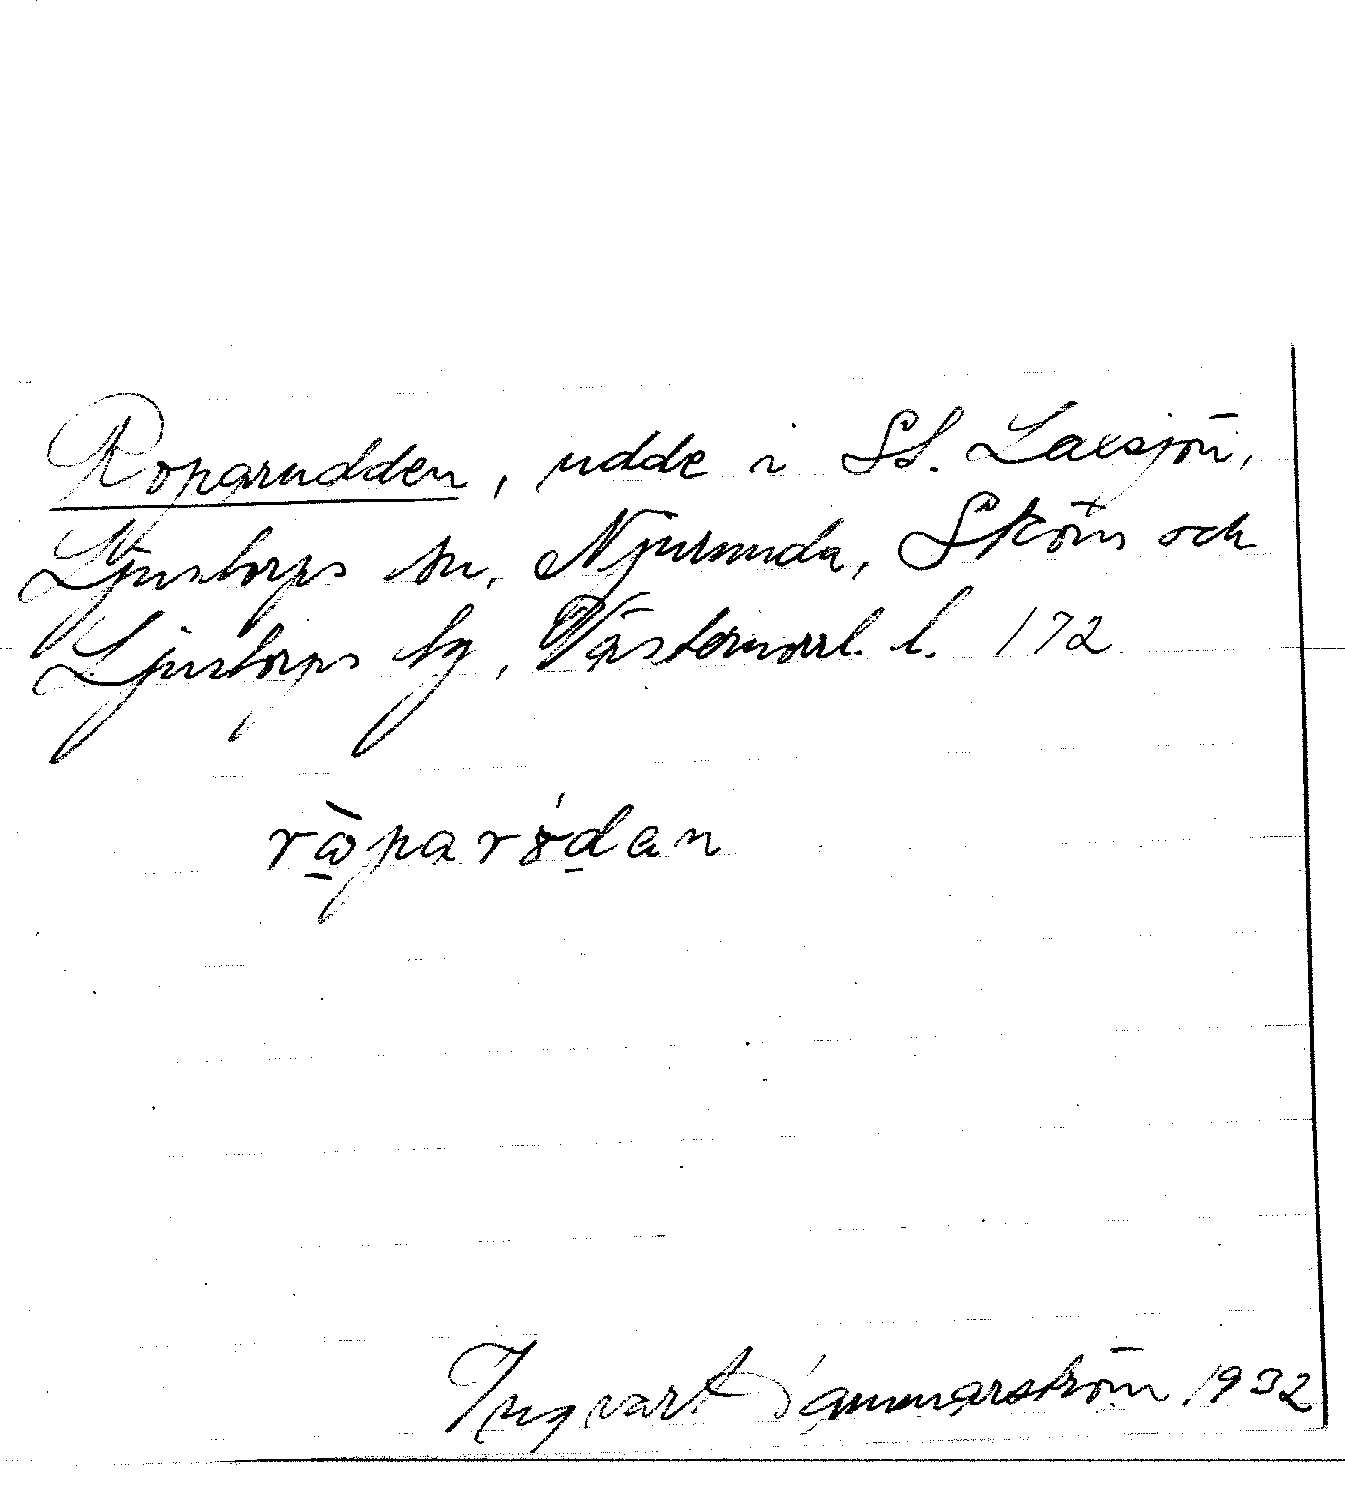 Roparudden, udde i St. Laxsjön,
Ljustorps sn, Njurunda, Sköns och
Ljustorps tg, Västernorrl. l. 172
Ingvart Hammarström 1932